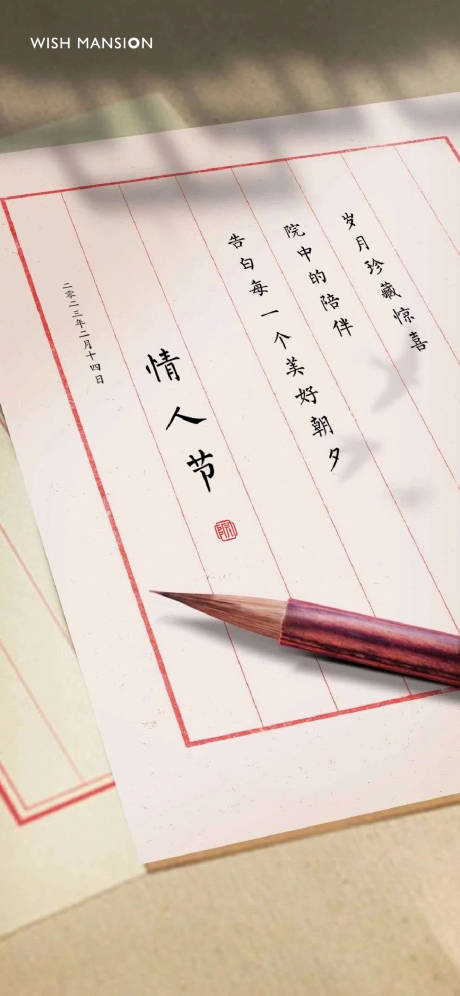 WISH MANSION
岁月珍藏惊喜
院中的陪伴
告白每一个美好朝夕
情人节
二零二三年二月十四日